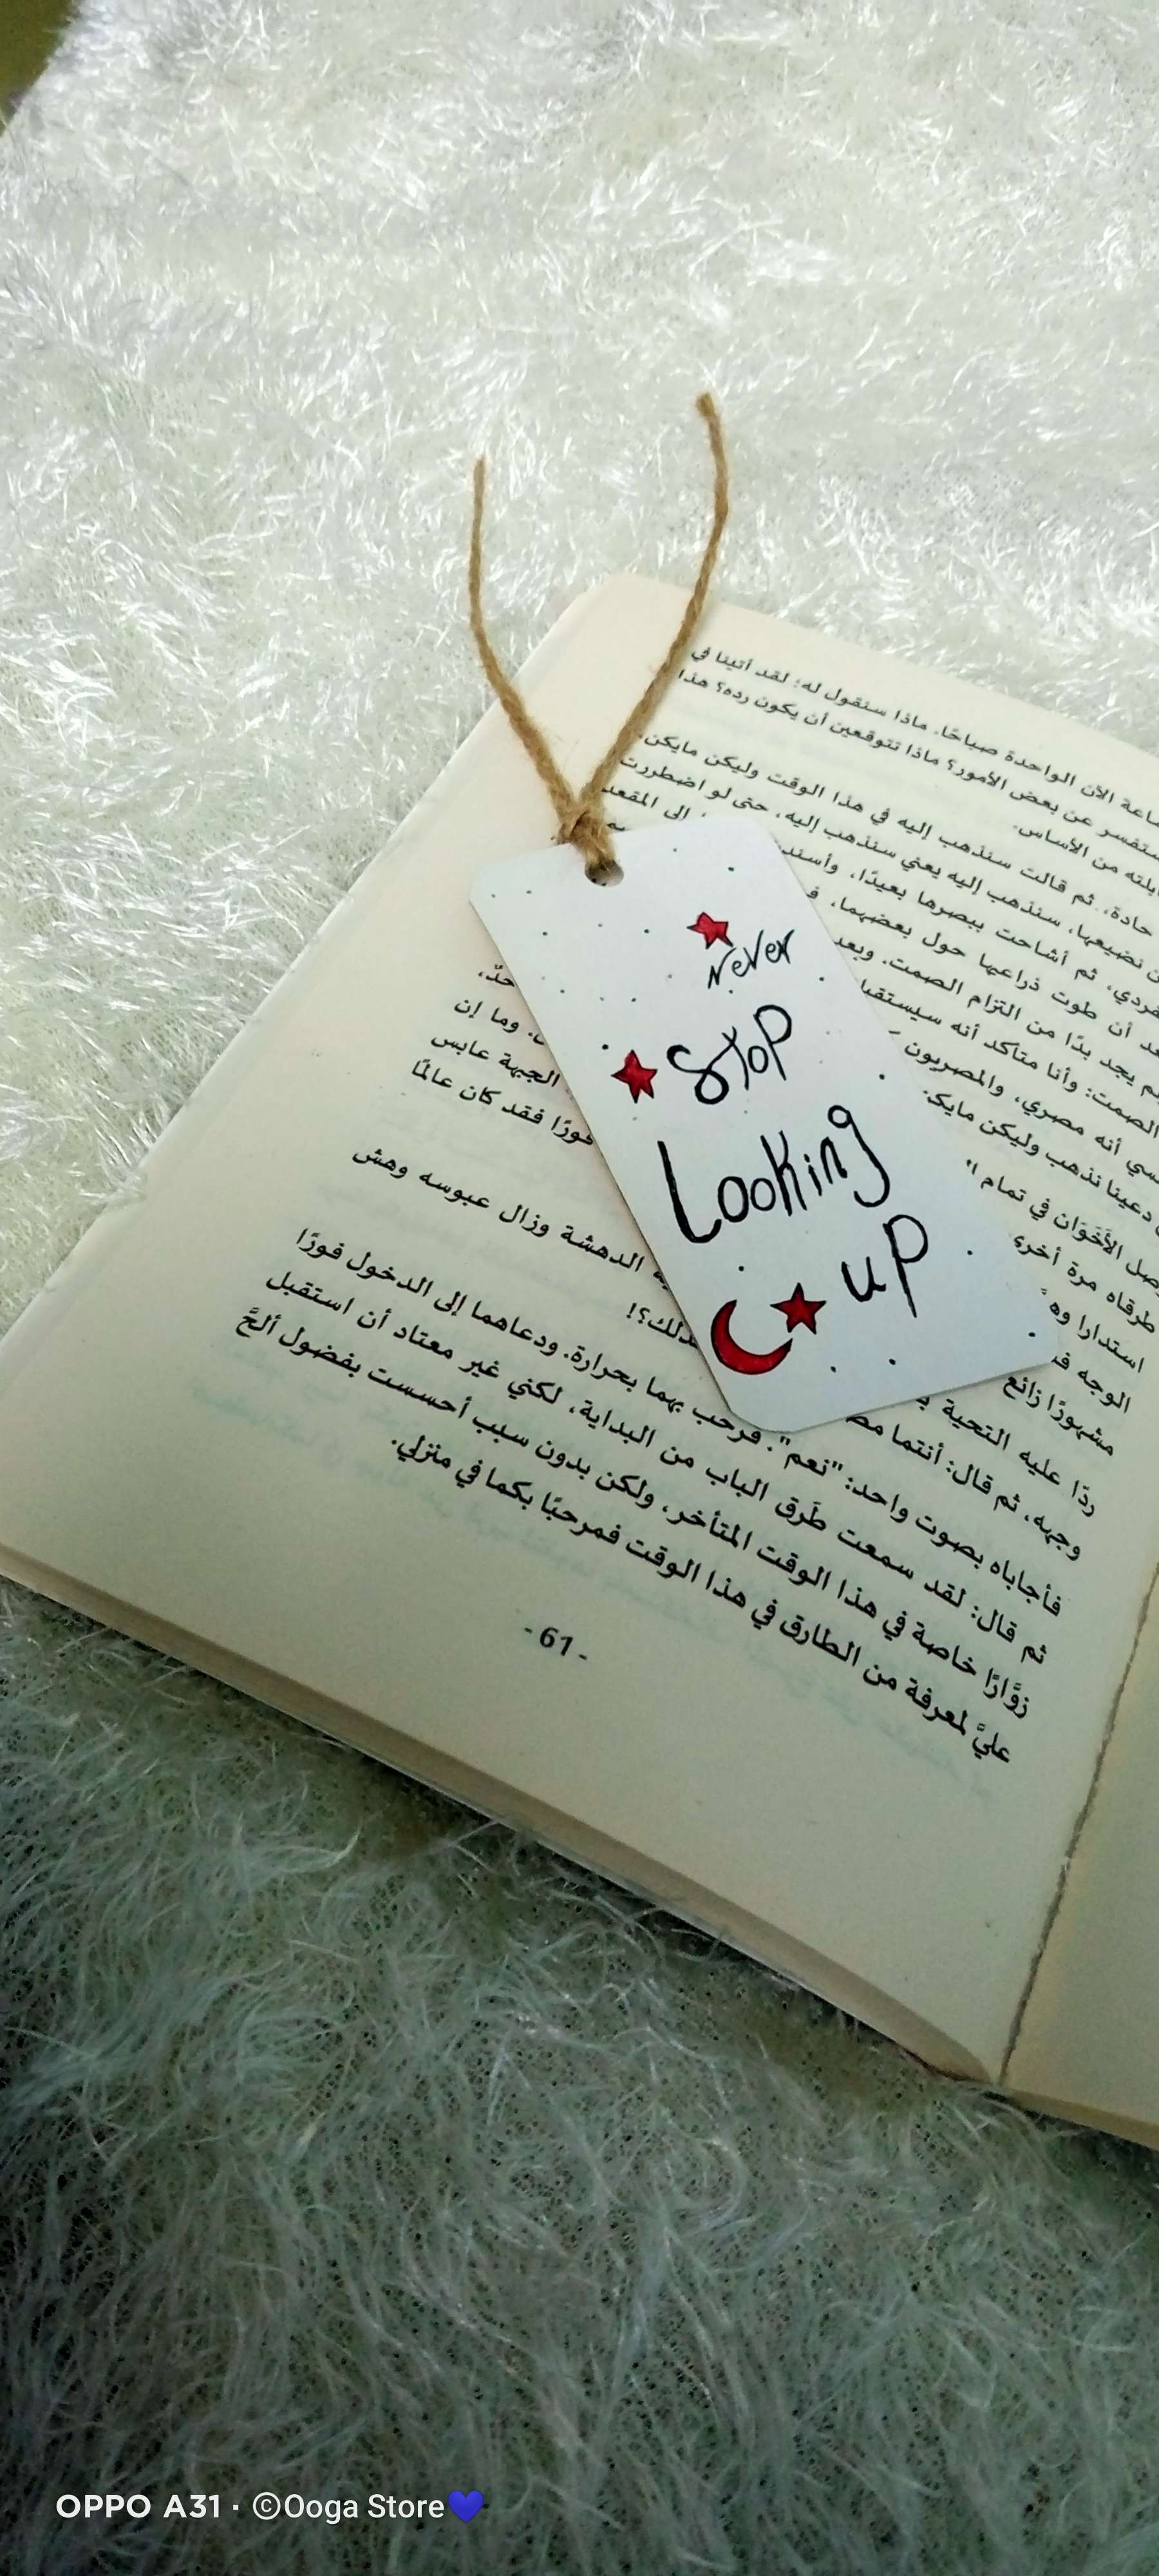 ساعة الآن الواحدة صباحًا. ماذا سنقول له: لقد أتينا في
ستفسر عن بعض الأمور؟ ماذا تتوقعين أن يكون رده؟ هذا
من الأساس.
حادة، ثم قالت سنذهب إليه في هذا الوقت وليكن مايكن.
نضيعها، سنذهب إليه يعني سنذهب إليه، حتى لو اضطررت
ثم أشاحت ببصرها بعيدًا، إلى المقعد
أن طوت ذراعيها حول بعضهما،
يجد بدًا من التزام الصمت. وبعد
الصمت: وأنا متأكد أنه حدّ،
أنه مصري، والمصريون وما إن
دعينا نذهب وليكن مايك الجبهة عابس
الأخَوَان في تمام فورًا فقد كان عالمًا
طرقاه مرة أخرى
استدارا
الوجه
مشهورًا زائع الدهشة وزال عبوسه وهش
ردًا عليه التحية
وجهه، ثم قال: أنتما
فأجاباه بصوت واحد: "نعم". فرحب بهما بحرارة. ودعاهما إلى الدخول فورًا
ثم قال: لقد سمعت طَرق الباب من البداية، لكني غير معتاد أن استقبل
زوَّارًا خاصة في هذا الوقت المتأخر، ولكن بدون سبب أحسست بفضول ألحَّ
عليَّ لمعرفة من الطارق في هذا الوقت فمرحبًا بكما في منزلي.
-61-
Never
Stop
Looking
uP
OPPO A31 · ©Ooga Store💙